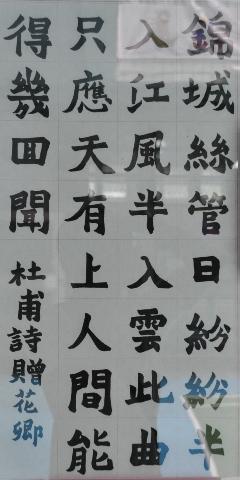 錦城絲管日紛紛半
入江風半入雲此曲
只應天有上人間能
得幾回聞
杜甫詩贈花卿